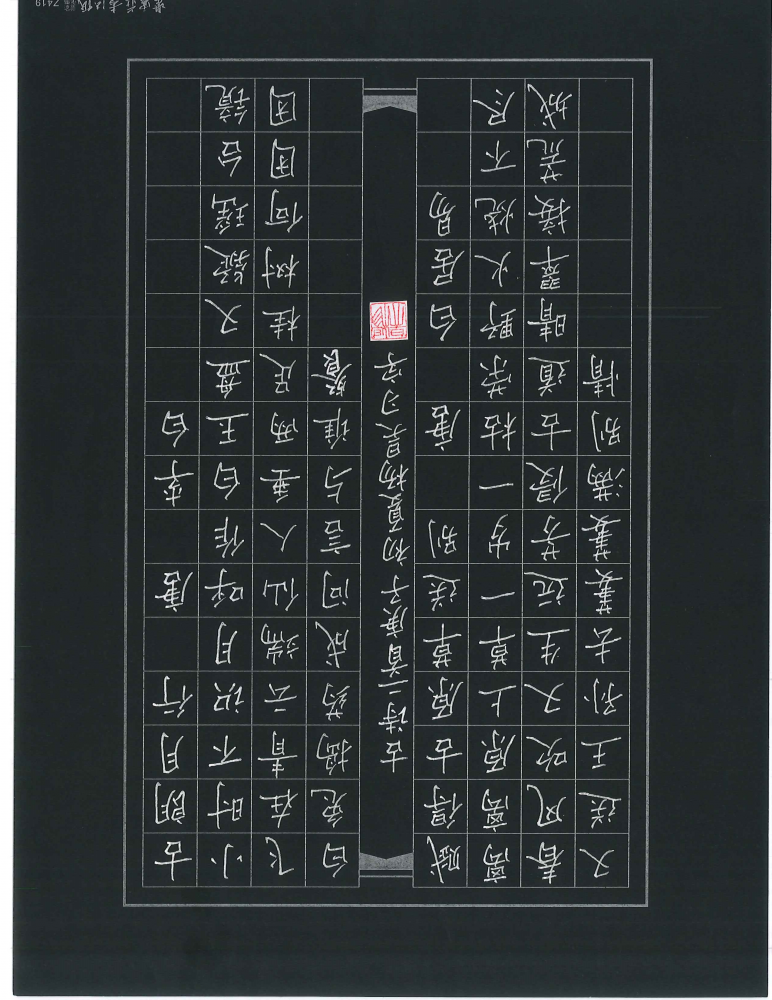 古朗月行 唐 李白
小时不识月呼作白玉盘又疑瑶台镜
飞在青云端仙人垂两足桂树何团团
白兔捣药成问言与谁餐
古诗二首庚子初夏杨昊习字
赋得古原草送别 唐 白居易
离离原上草一岁一枯荣野火烧不尽
春风吹又生远芳侵古道晴翠接荒城
又送王孙去萋萋满别情
7419